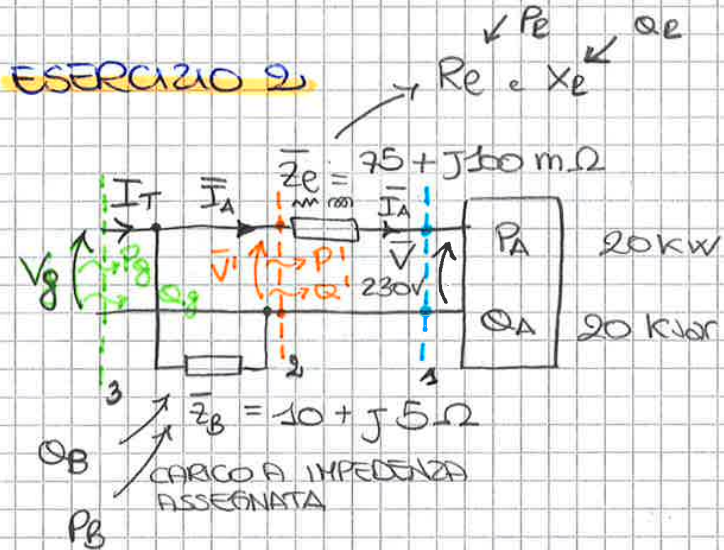 PR QR
ESERCIZIO 2
Re e Xe
Z̅e = 75 + J100 mΩ
IT I̅A I̅A
Vg Pg Qg V̅' P' Q' V̅ 230V PA 20 KW
QA 20 KVar
3 2 1
Z̅B = 10 + J 5 Ω
QB
CARICO A IMPEDENZA
ASSEGNATA
PB